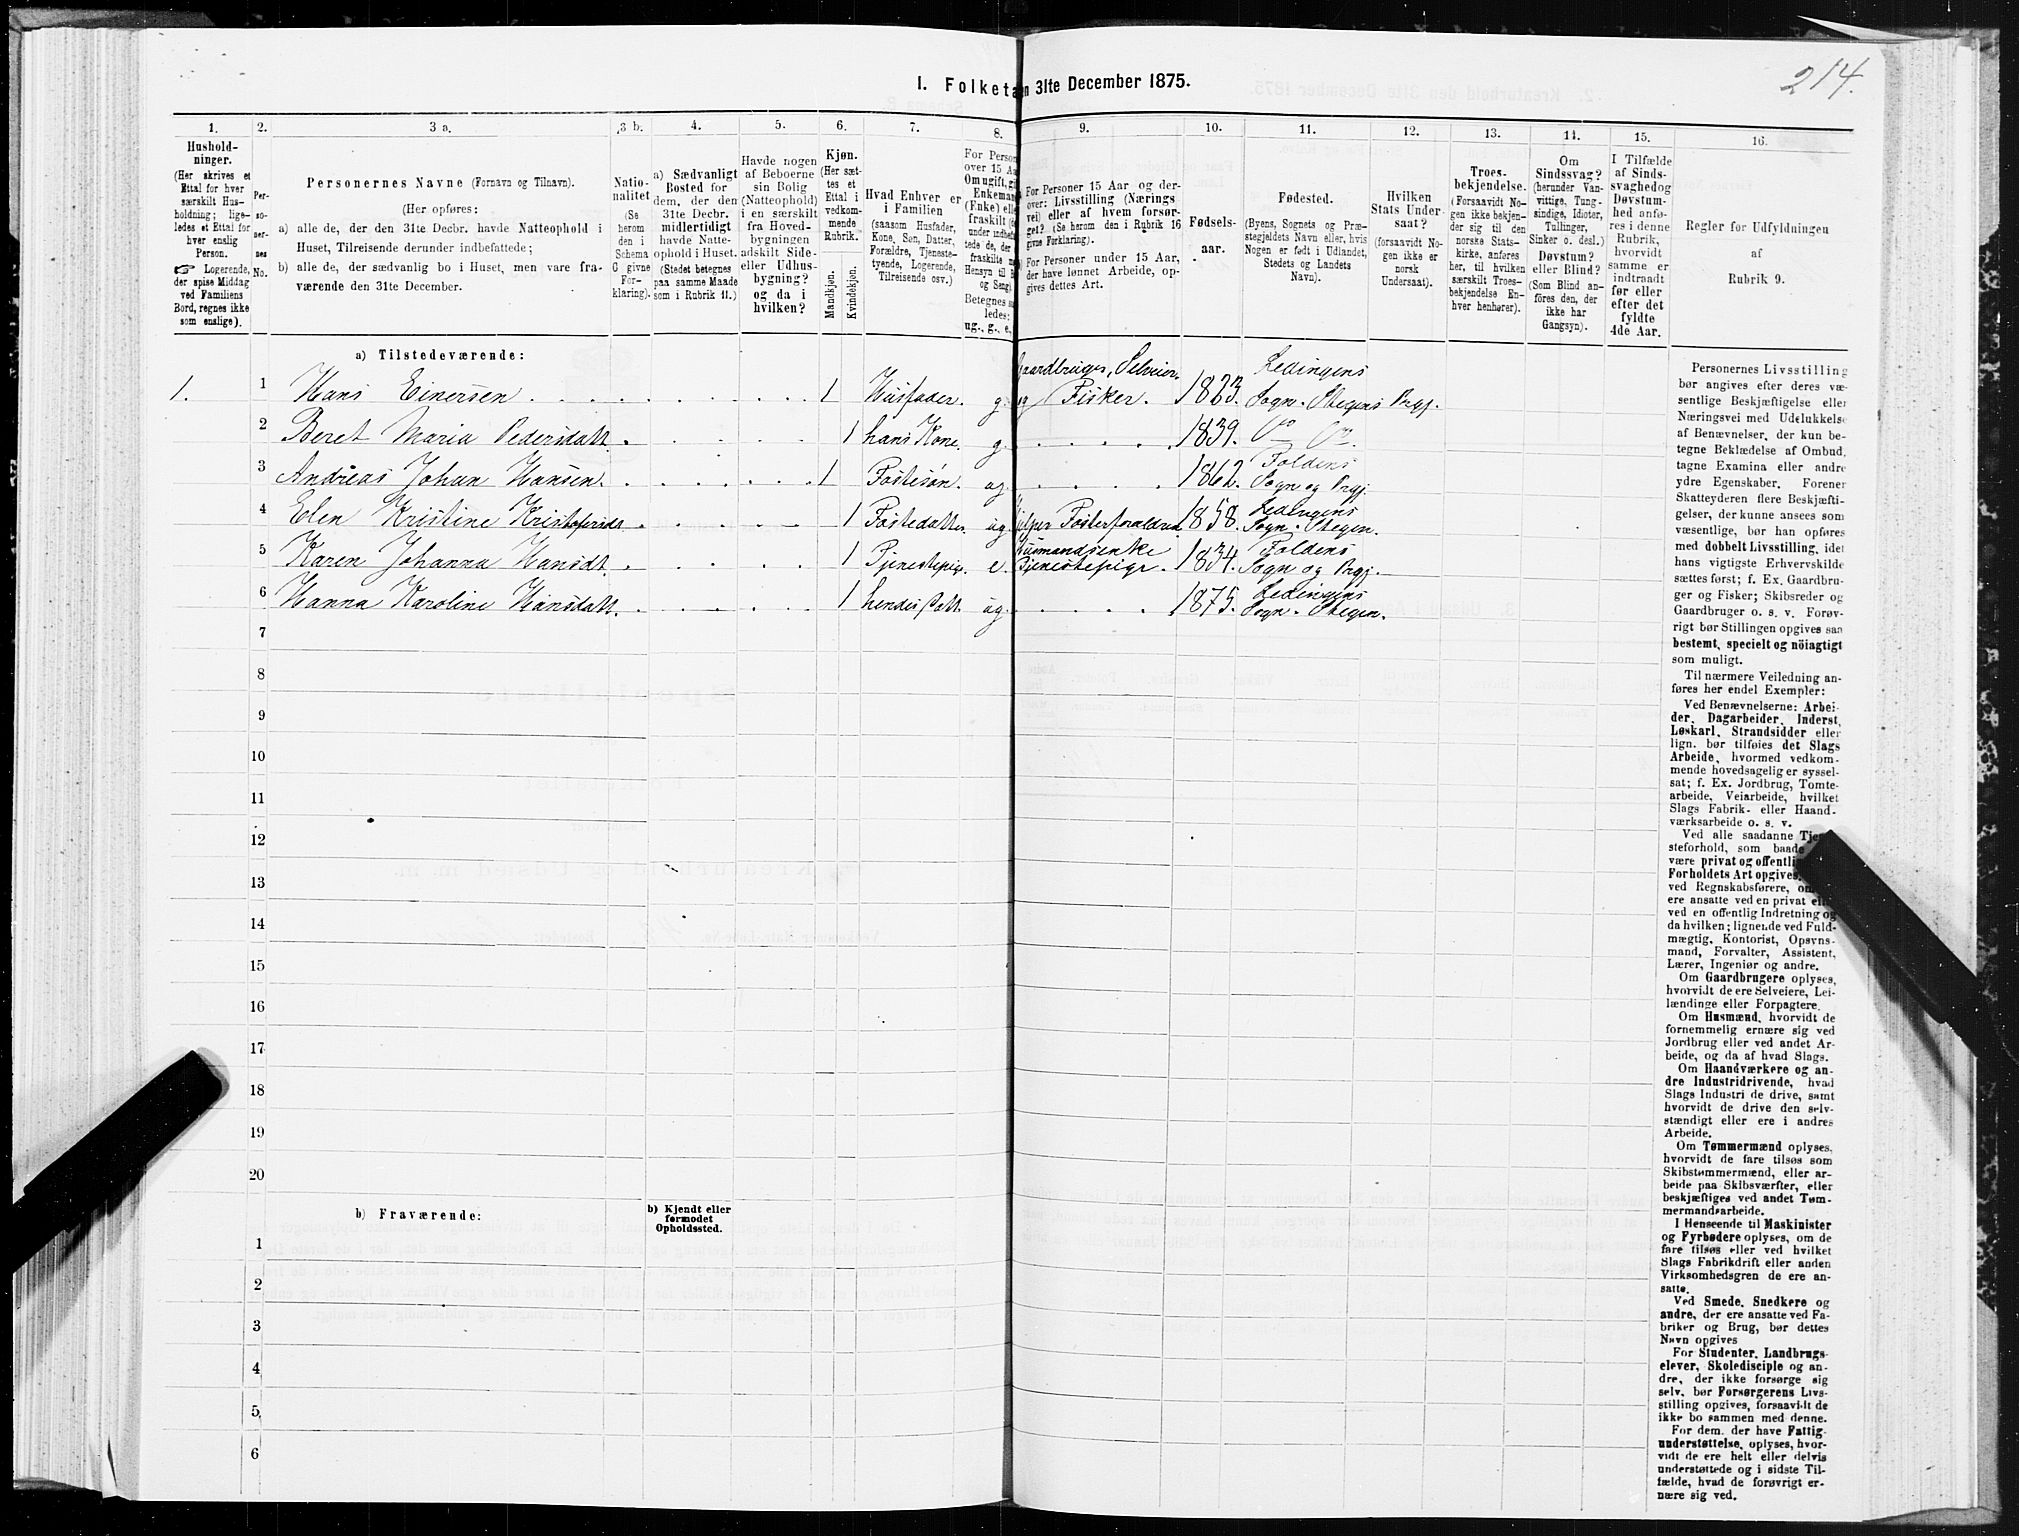 I. Folketa n 31te December 1875.
214.
1. 2. 3 a. 3 b. 4. 5. 6. 7. 8. 9. 10. 11. 12. 13. 14. 15. 16.
Hushold-
ninger.
(Her skrives et
Ettal for hver
særskilt Hus-
holdning; lige-
ledes et Ettal for
hver enslig
Person.
☞ Logerende,
der spise Middag
ved Familiens
Bord, regnes ikke
som enslige).
Per-
so-
ner-
nes
No.
Personernes Navne (Fornavn og Tilnavn).
(Her opføres:
a) alle de, der den 31te Decbr. havde Natteophold i
Huset, Tilreisende derunder indbefattede;
b) alle de, der sædvanlig bo i Huset, men vare fra-
værende den 31te December.
Natio-
nalitet
(Se
herom
den i
Schema
G givne
For-
klaring).
a) Sædvanligt
Bosted for
dem, der den
31te Decbr.
midlertidigt
havde Natte-
ophold i Huset.
(Stedet betegnes
paa samme Maade
som i Rubrik 11.)
Havde nogen
af Beboerne
sin Bolig
(Natteophold)
i en særskilt
fra Hoved-
bygningen
adskilt Side-
eller Udhus-
bygning?
og da i
hvilken?
Kjøn.
(Her sæt-
tes et
Ettal i
vedkom-
mende
Rubrik.
Mandkjøn.
Kvindekjøn.
Hvad Enhver er
i Familien
(saasom Husfader,
Kone, Søn, Datter,
Forældre, Tjeneste-
tyende, Logerende,
Tilreisende osv.)
For Person
over 15 Aa
Om ugift, gi
Enkeman
(Enke) elle
fraskilt (
under indbefat
tede de, der
fraskilte
Hensyn til B
og Seng)
Betegnes
ledes:
ug., g., e.,
For Personer 15 Aar og der-
over: Livsstilling (Nærings
vei) eller af hvem forsør-
get? (Se herom den i Rubrik 16
givne Forklaring).
For Personer under 15 Aar,
der have lønnet Arbeide, op-
gives dettes Art.
Fødsels-
aar.
Fødested.
(Byens, Sognets og Præ-
stegjeldets Navn eller, hvis
Nogen er født i Udlandet,
Stedets og Landets
Navn).
Hvilken
Stats Under-
saat?
(forsaavidt No-
gen ikke er
norsk
Undersaat).
Troes-
bekjendelse.
(Forsaavidt No-
gen ikke bekjen-
der sig til den
norske Stats-
kirke, anføres
her, til hvilken
særskilt Troes-
bekjendelse En-
hver henhører).
Om
Sindssvag?
(herunder Van-
vittige, Tung-
sindige, Idioter,
Tullinger,
Sinker o. desl.)
Døvstum?
eller Blind?
(Som Blind an-
føres den, der
ikke har
Gangsyn).
I Tilfælde
af Sinds-
svaghedog
Døvstum-
hed anfø-
res i denne
Rubrik,
hvorvidt
samme er
indtraadt
før eller
efter det
fyldte
4de Aar.
Regler for Udfyldningen
af
Rubrik 9.
a) Tilstedeværende:
1. 1 Hans Einersen 1 Husfader. g. Gaardbruger, Selveier og Fisker. 1823. Ledingens Sogn. Stegens Prgj.
2 Beret Maria Pedersdatt. 1 hans Kone. g. 1839. Do Do
3 Andreas Johan Hansen. 1 Fostesøn. ug. 1862. Foldens Sogn og Prgj.
4 Elen Kristine Kristofersdt. 1 Fostedatter. ug. Hjelper Fosterforældrene 1858. Ledingens Sogn. Stegen.
5 Karen Johanna Hansdt. 1 Tjenestepige. e. Husmandsenke Tjenestepige. 1834. Foldens Sogn og Prgj.
6 Hanna Karoline Hansdatt. 1 hendes Datt. ug. 1875. Ledingens Sogn. Stegen.
7
8
9
10
11
12
13
14
15
16
17
18
19
20
b) Fraværende:
b) Kjendt eller
formodet
Opholdssted.
1
2
3
4
5
6
Personernes Livsstilling
bør angives efter deres væ-
sentlige Beskjæftigelse eller
Næringsvei med Udelukkelse
af Benævnelser, der kun be-
tegne Beklædelse af Ombud,
tagne Examina eller andre
ydre Egenskaber. Forener
Skatteyderen flere Beskjæfti-
gelser, der kunne ansees som
væsentlige, bør han opføres
med dobbelt Livsstilling, idet
hans vigtigste Erhvervskilde
sættes først; f. Ex. Gaardbru-
ger og Fisker; Skibsreder og
Gaardbruger o. s. v. Forøv-
rigt bør Stillingen opgives saa
bestemt, specielt og nöiagtigt
som muligt.
Til nærmere Veiledning an-
føres her endel Exempler:
Ved Benævnelserne: Arbei-
der, Dagarbeider, Inderst,
Løskarl, Strandsidder eller
lign. bør tilføies det Slags
Arbeide, hvormed vedkom-
mende hovedsagelig er syssel-
sat; f. Ex. Jordbrug, Tomte-
arbeide, Veiarbeide, hvilket
Slags Fabrik- eller Haand-
værksarbeide o. s. v.
Ved alle saadanne Tje
steforhold, som baade
være privat og offentli
Forholdets Art opgives,
ved Regnskabsførere, om
ere ansatte ved en privat elle
ved en offentlig Indretning og
da hvilken; lignende ved Fuld-
mægtig, Kontorist, Opsyns-
mand, Forvalter, Assistent,
Lærer, Ingeniør og andre.
Om Gaardbrugere oplyses,
hvorvidt de ere Selveiere, Lei-
lændinge eller Forpagtere.
Om Husmænd, hvorvidt de
fornemmelig ernære sig ved
Jordbrug eller ved andet Ar-
beide, og da af hvad Slags.
Om Haandværkere og an-
dre Industridrivende, hvad
Slags Industri de drive, samt
hvorvidt de drive den selv-
stændigt eller ere i andres
Arbeide.
Om Tømmermænd oplyses,
hvorvidt de fare tilsøs som
Skibstømmermænd, eller ar-
beide paa Skibsværfter, eller
beskjæftiges ved andet Tøm-
mermandsarbeide.
I Henseende til Maskinister
og Fyrbødere oplyses, om de
fare tilsøs eller ved hvilket
Slags Fabrikdrift eller anden
Virksomhedsgren de ere an-
satte.
Ved Smede, Snedkere og
andre, der ere ansatte ved Fa-
briker og Brug, bør dettes
Navn opgives
For Studenter, Landbrugs-
elever, Skoledisciple og an-
dre, der ikke forsørge sig
selv, bør Forsørgerens Livs-
stilling opgives, forsaavidt de
ikke bo sammen med denne.
For dem, der have Fattig-
understøttelse, oplyses, hvor-
vidt de ere helt eller delvis
understøttede og i sidste Til-
fælde, hvad de forøvrigt er-
nære sig ved.